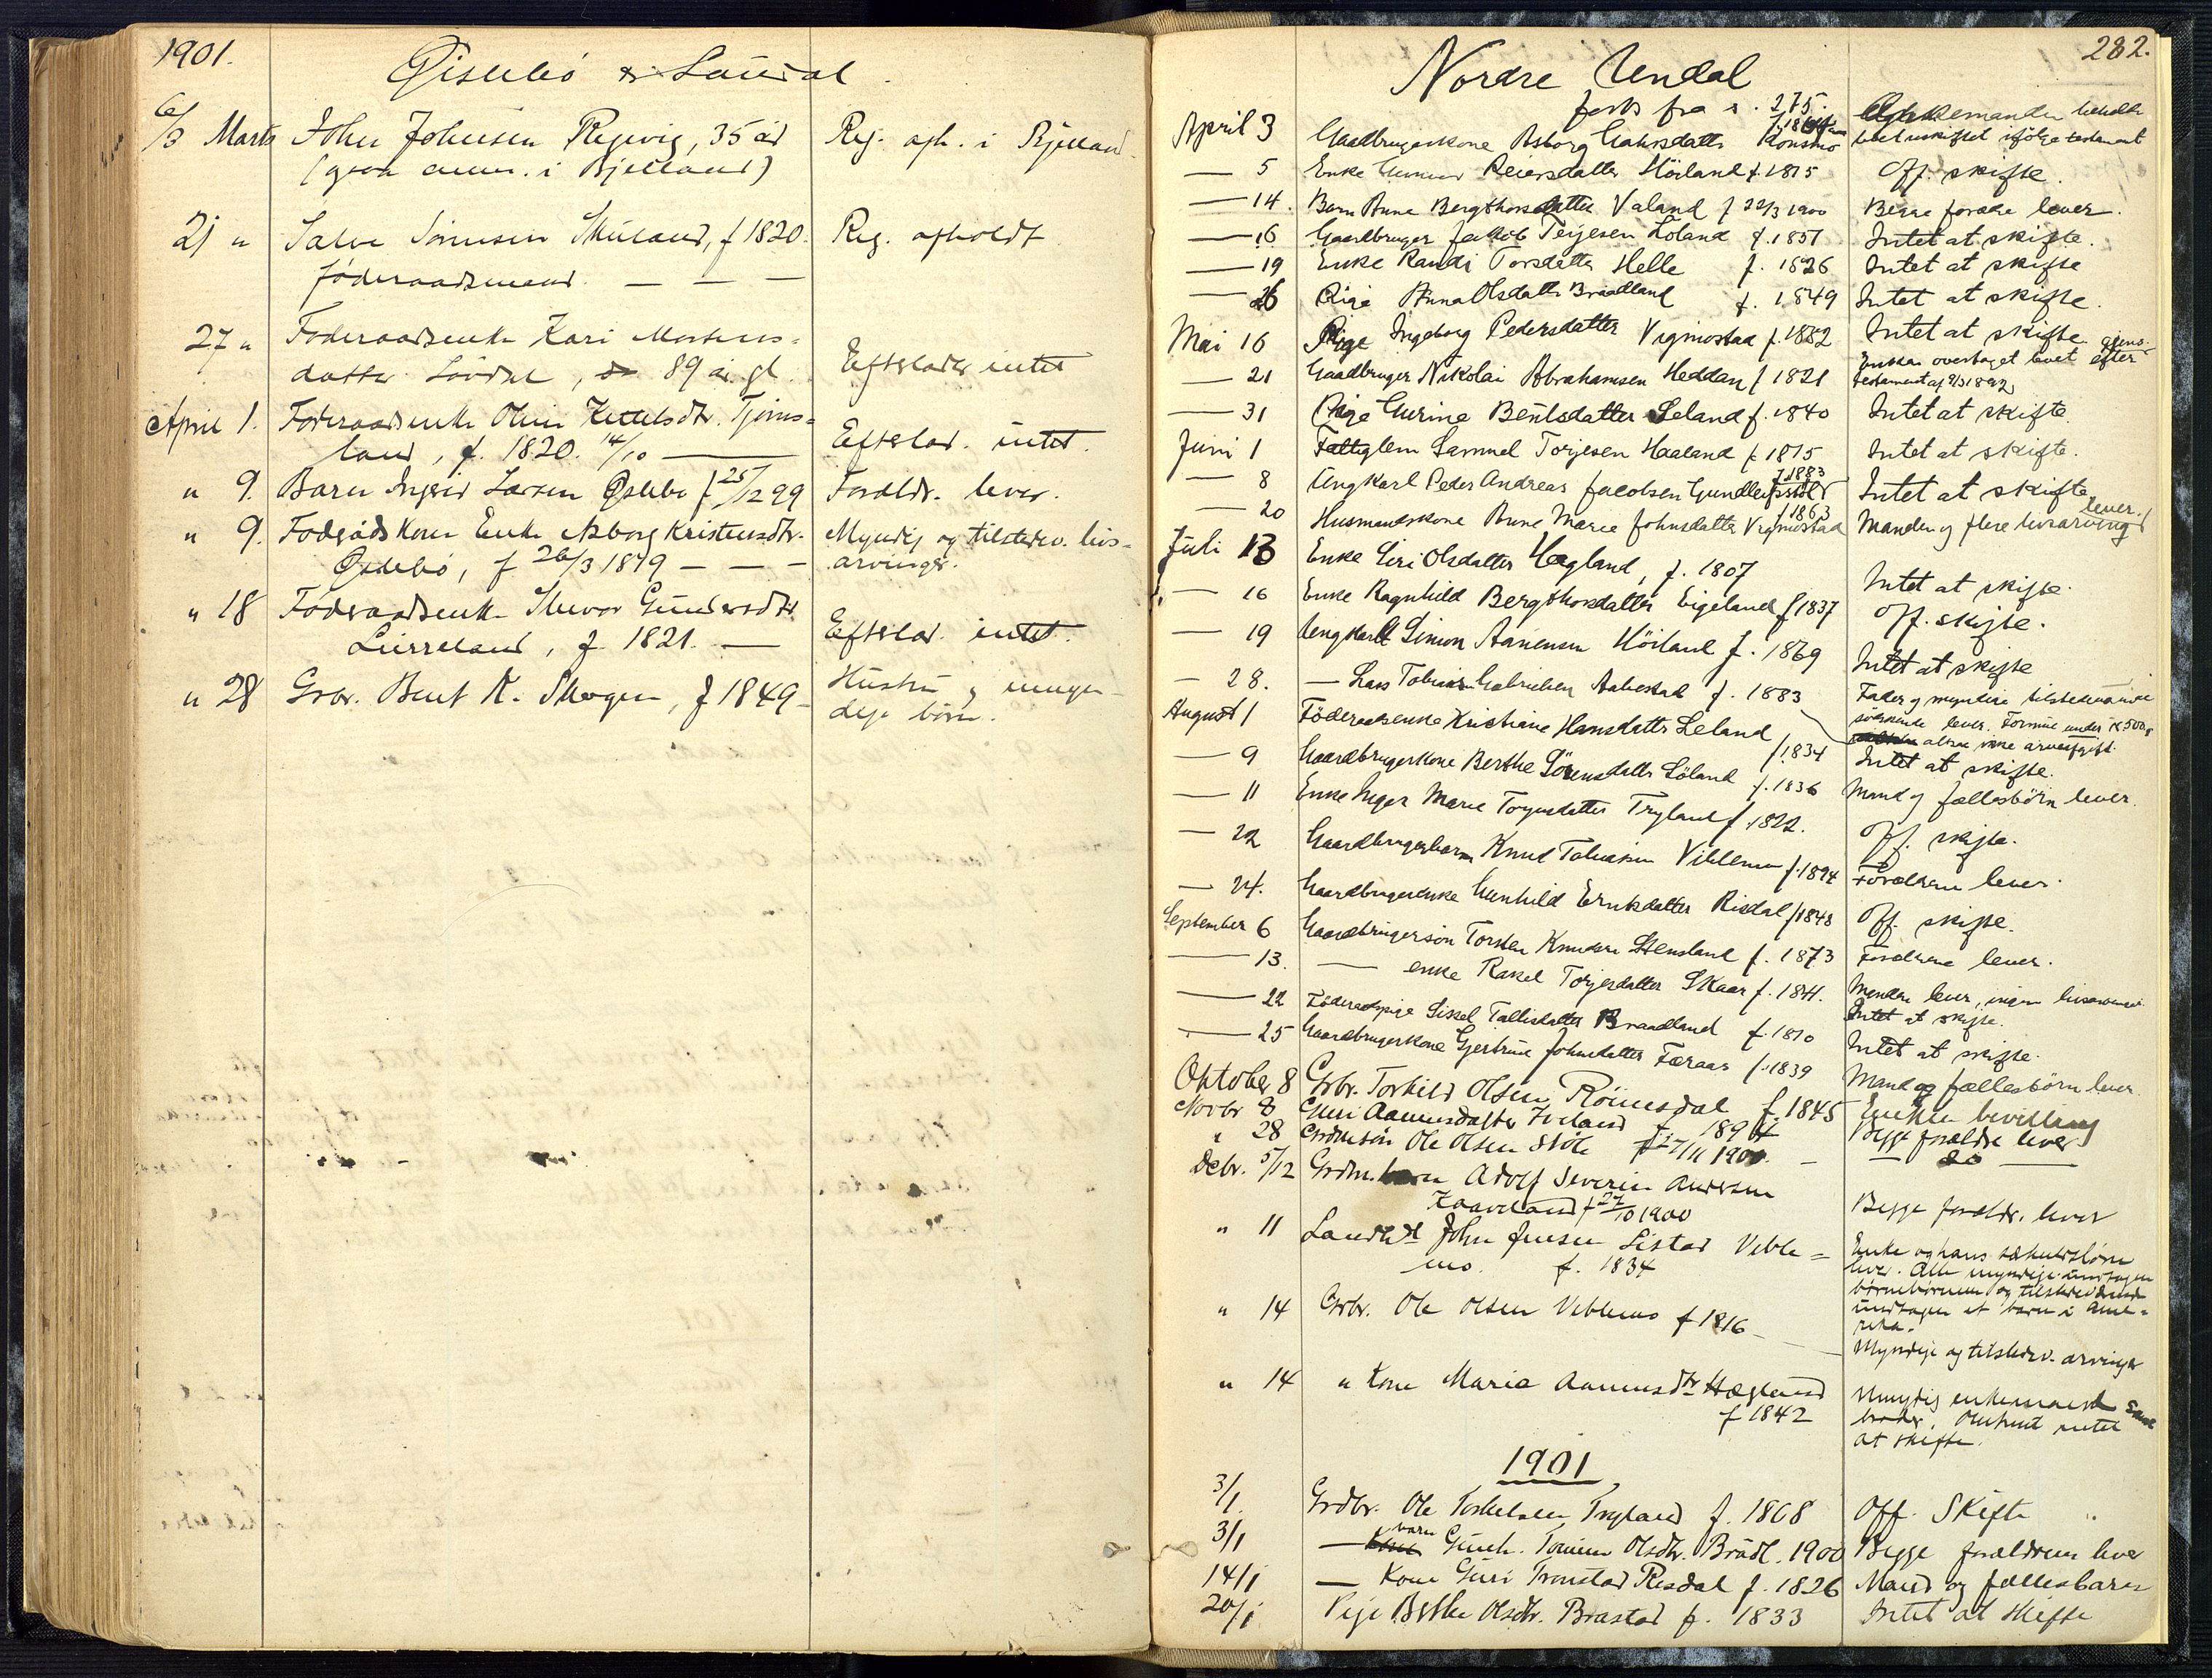 1901.
Øislebö & Laudal.
6/3 Marts John Johnsen Rysvig, 35 år Reg. afh. i Bjelland
(gran anm. i Bjelland)
21 " Salve Sörensen Skuland, f 1820. Reg. afholdt
föderaadsmand. — — —
27 " Föderaadsenke Kari Mortens-
datter Löudal, 89 år gl. Efterlader intet
April 1. Föderaadsenke Oline Kittelsdtr. Tjoms-
land, f. 1820. 14/10 Efterlad. intet.
" 9. Barn Ingrid Larsen Øslebö f 25/12 99 Foreldr. lever.
" 9. Foderåds kone Enke Asborg Kristensdtr. Myndig og tilstedev. livs-
Øslebö, f 26/3 1849 — — — arvinger.
" 18 Föderaadsenke Gundersdtr
f. 1821. — Efterlad. intet.
" 28 Grbr. Bent K. Skogen, f 1849 Hustru og umyn-
dige börn.
282.
Nordre Undal
forts fra s. 275.
April 3 Gaardbrugerkone Asborg Konsmo
boet uskiftet ifölge testament
— 5 Enke Reiersdatter Höiland f. 1815 Off. skifte.
— 14. Barn Anne Bergthorsdatter Valand f 22/3 1900 Begge forældre lever.
— 16 Gaardbruger Jakob Terjesen Löland f. 1851 Intet at skifte.
— 19 Enke Randi Torsdatter Helle f. 1826 Intet at skifte
— 26 Pige Anna Olsdatter Braadland f. 1849 Intet at skifte.
Mai 16 Pige Ingeborg Pedersdatter Vigmostad f. 1882 Intet at skifte.
— 21 Gaardbruger Nikolai Abrahamsen Heddan f 1821 Enken overtaget boet efter gjens.
testament af 9/3 1892
— 31 Pige Gurine Bentsdatter Leland f. 1840 Intet at skifte.
Juni 1 Fattiglem Samuel Torjesen Haaland f. 1815 Intet at skifte.
— 8 Ungkarl Peder Andreas Jacobsen Gundleifsstöl f 1883 Intet at skifte
— 20 Husmandskone Anne Marie Johnsdatter Vigmostad f 1863 Manden og flere livsarving lever.
Juli 13 Enke Siri Olsdatter Hægland, f. 1807 Intet at skifte.
— 16 Enke Ragnhild Bergthorsdatter Eigeland f 1837 Off. skifte.
— 19 Ungkarl Simon Aanensen Höiland f. 1869 Intet at skifte
— 28. — Lars Tobias Gabrielsen f. 1883 Fader og myndige tilstedeværende
söskende lever. Formue under K 500,
altsaa ikke arveafgift.
August 1 Föderaadsenke Kristiane Hansdatter Leland f. 1834 Intet at skifte.
— 9 Gaardbrugerkone Berthe Sörensdatter Löland f. 1836 Mand og fællesbörn lever.
— 11 Enke Inger Marie Torjusdatter Trygland f. 1822. Off. skifte.
— 22 Gaardbrugerbarn Knud Tobiassen Viblemo f. 1894 Forældrene lever.
— 24. Gaardbrugerenke Gunhild Eriksdatter Risdal f 1848 Off. skifte.
September 6 Gaardbrugersön Torsten Knudsen Stensland f. 1873 Forældrene lever.
— 13. — enke Rakel Torjesdatter Skaar f. 1841. Manden lever, ingen livsarvinger
Intet at skifte.
— 22 Föderaadspige Sissel Tallisdatter Braadland f. 1810 Intet at skifte.
— 25 Gaardbrugerkone Gjertrud Johnsdatter Færaas f. 1839 Mand og fællesbörn lever
Oktober 8 Grbr. Torkild Olsen Röinesdal f. 1845 Enken bevilling
Novbr 8 Guri Aanensdatter f. 1894 Begge forældre lever
" 28 Grdmsön Ole Olsen Stöle f 27/11 1900. — do —
Decbr. 5/12 Grdm. barn Adolf Severin Andersen
f 27/10 1900 Begge foreldr. lever
" 11 Landhdl John Jensen Listad Vible-
mo. f. 1834
Enke og hans særkuldsbörn
lever. Alle myndige undtagen
börnebörnene og tilstedeværende
undtagen et barn i Ame-
rika.
" 14 Grbr. Ole Olsen Viblemo f 1816 Myndige og tilstedev. arvinger
" 14 " Kone Marie Aanensdtr Hægland
f 1842
Myndig enkemand samt
broder. Omtrent intet
at skifte.
1901
3/1. Grdbr. Ole Torkelsen Trygland f. 1868 Off. Skifte
3/1 — barn Gunh. Tomine Olsdtr. Brådl. 1900 Begge foreldrene lever
14/1 — Kone Guri Tronstad Risdal f. 1826 Mand og fellesbarn
20/1 Pige Berthe Olsdtr. Brastad f. 1833 Intet at skifte